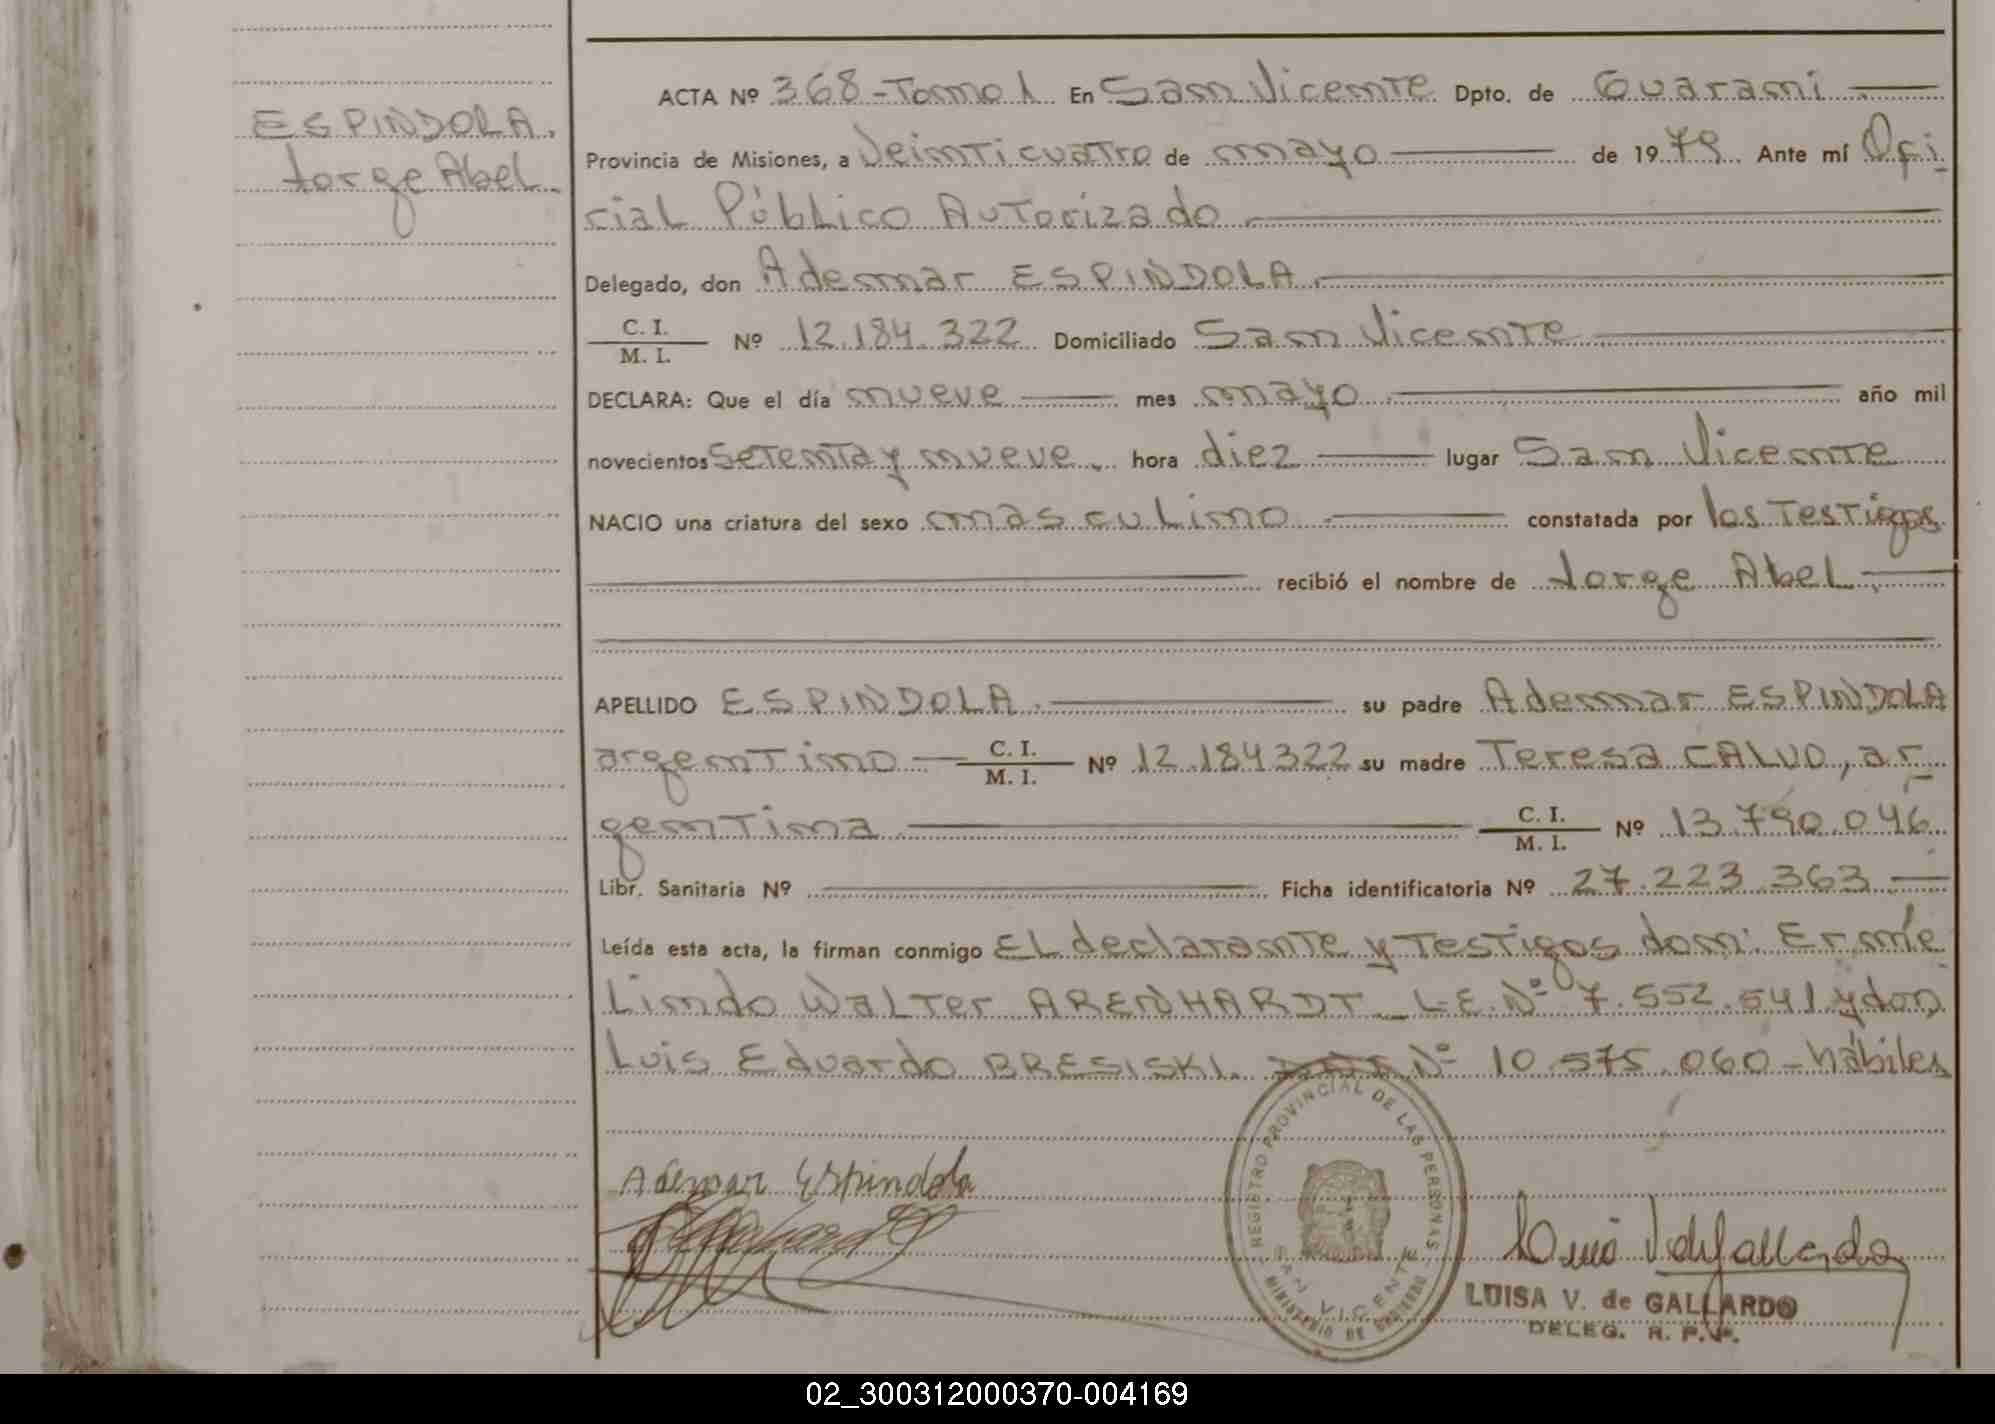 ESPINDOLA.
Jorge Abel
ACTA Nº 368-Tomo 1 En San Vicente Dpto. de Guaraní
Provincia de Misiones, a Veinticuatro de mayo de 1979 Ante mí Ofi
cial Público Autorizado
Delegado, don Ademar ESPINDOLA.
C. I.
M. I. Nº 12.184.322 Domiciliado San Vicente
DECLARA: Que el día nueve mes mayo año mil
novecientos setenta y nueve. hora diez lugar San Vicente
NACIO una criatura del sexo masculino constatada por los Testigos
recibió el nombre de Jorge Abel
APELLIDO ESPINDOLA. su padre Ademar ESPINDOLA
argentino C. I.
M. I. Nº 12.184322 su madre Teresa CALVO, ar
gentina C. I.
M. I. Nº 13.790.046
Libr. Sanitaria Nº Ficha identificatoria Nº 27.223.363
Leída esta acta, la firman conmigo El declarante y Testigos don: Ermé
Lindo Walter ARENHARDT_ L.E. Nº 7.552.541 y don
Luis Eduardo BRESISKI. Nº 10.575.060 - hábiles
Ademar Espindola
REGISTRO PROVINCIAL DE LAS PERSONAS
SAN VICENTE
MINISTERIO DE GOBIERNO
Luisa V de Gallardo
LUISA V. de GALLARDO
DELEG. R. P. P.
02_300312000370-004169